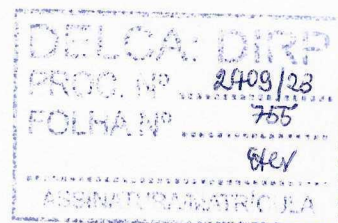 DELCA: DIRP
PROC. Nº 2409/23
FOLHA Nº 755
ASSINATURA/MATRÍCULA